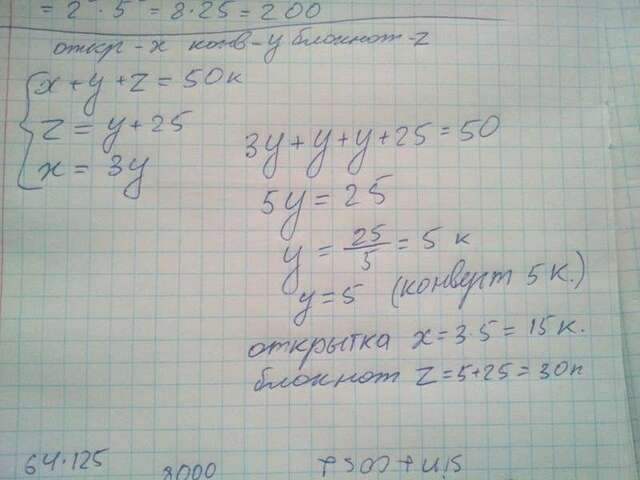 = 2 · 5 = 8·25 = 200
откр - x конв - y блокнот - z
x + y + z = 50к
z = y + 25
x = 3y
3y + y + y + 25 = 50
5y = 25
y = 25/5 = 5 к
y = 5 (конверт 5 к.)
открытка x = 3·5 = 15 к.
блокнот z = 5 + 25 = 30к
64·125
8000